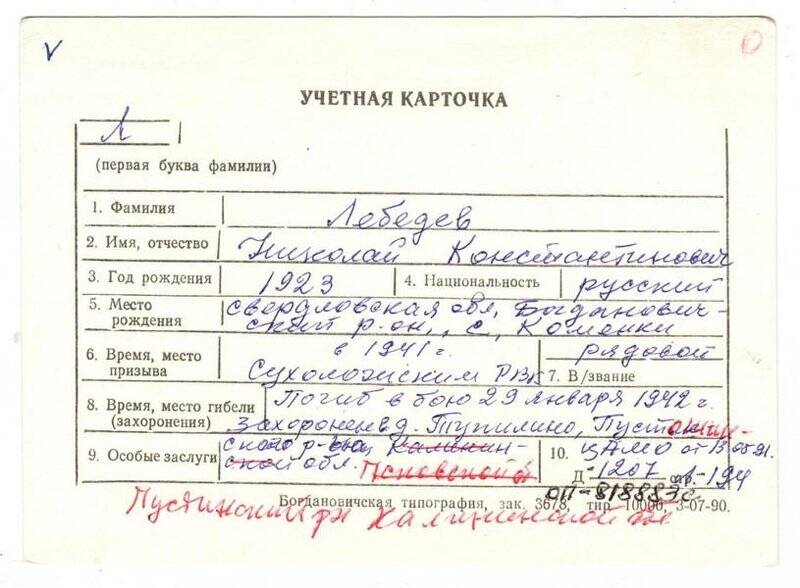 V
УЧЕТНАЯ КАРТОЧКА
Л
(первая буква фамилии)
1. Фамилия Лебедев
2. Имя, отчество Николай Константинович
3. Год рождения 1923 4. Национальность русский
5. Место рождения Свердловская обл, Богданович-
ский р-он, с, Коменки
6. Время, место призыва в 1941 г.
Сухоложским РВК 7. В/звание рядовой
8. Время, место гибели (захоронения) Погиб в бою 29 января 1942 г.
Захоронен в д. Тупилино,
9. Особые заслуги ского р-на Калинин-
ской обл. Псковской
10. ЦАМО от
Д-1207 -194
оп-818883с.
Богдановичская типография, зак. 3678, тир. 10000, 3-07-90.
Калининской